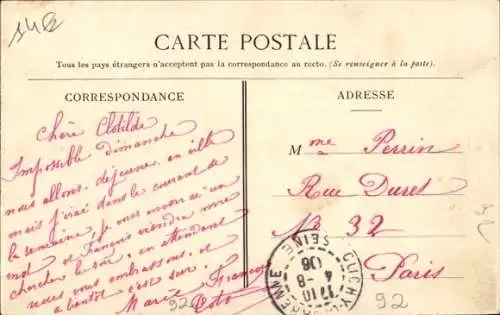 1482
CARTE POSTALE
Tous les pays étrangers n'acceptent pas la correspondance au recto. (Se renseigner à la poste).
CORRESPONDANCE
Chère Clotilde
Impossible Dimanche
nous allons déjeuner en ville
mais j'irai dans le courant de
la semaine, je vous enverrai un
mot et François viendra me
chercher le soir, en attendant
nous vous embrassons, et
à bientôt c'est sur.
Marie François
Toto
92
ADRESSE
Mme Perrin
Rue Duret
No 32
Paris
92
CLICHY-LA-GARENNE
SEINE
1710
4 -8
06